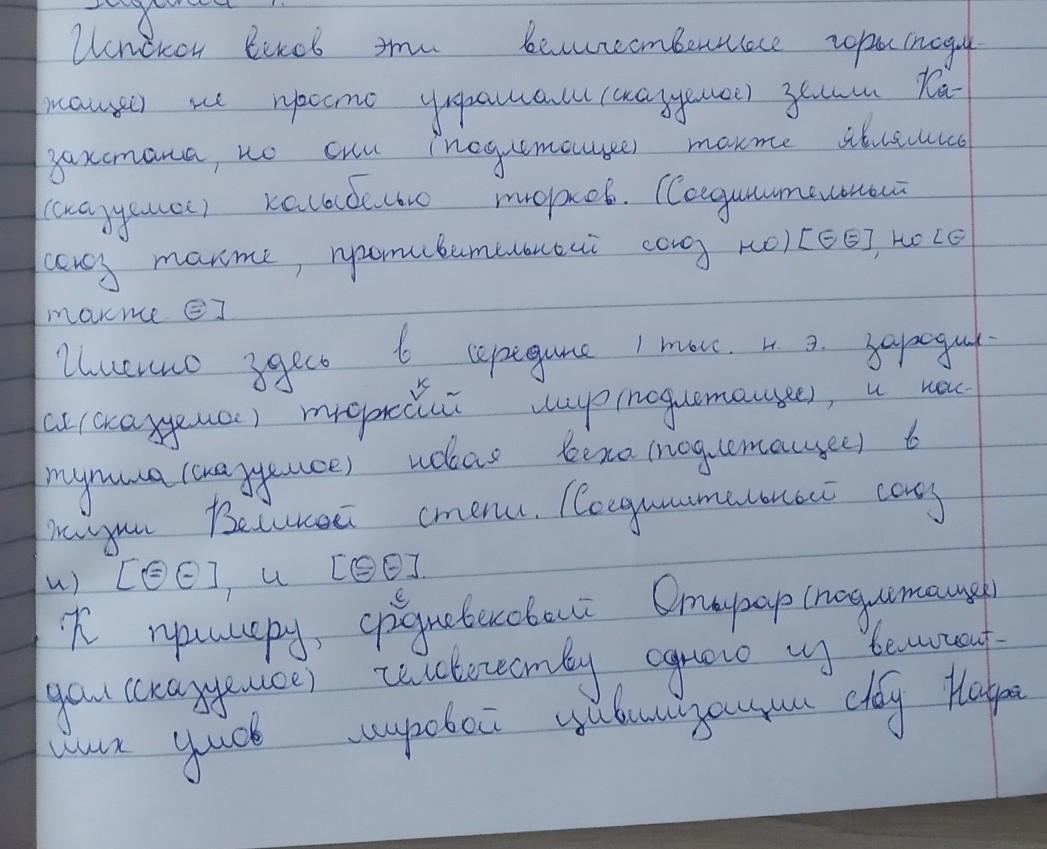 Испокон веков эти величественные горы (подле-
жащее) не просто украшали (сказуемое) земли Ка-
захстана, но они (подлежащее) также являлись
(сказуемое) колыбелью тюрков. (Соединительный
союз также, противительный союз но) [⊖⊖], но [⊖
также ⊖]
Именно здесь в середине 1 тыс. н. э. зародил-
ся (сказуемое) тюркский мир (подлежащее), и нас-
тупила (сказуемое) новая веха (подлежащее) в
жизни Великой степи. (Соединительный союз
и) [⊖⊖], и [⊖⊖].
К примеру, средневековый Отырар (подлежащее)
дал (сказуемое) человечеству одного из величай-
ших умов мировой цивилизации Абу